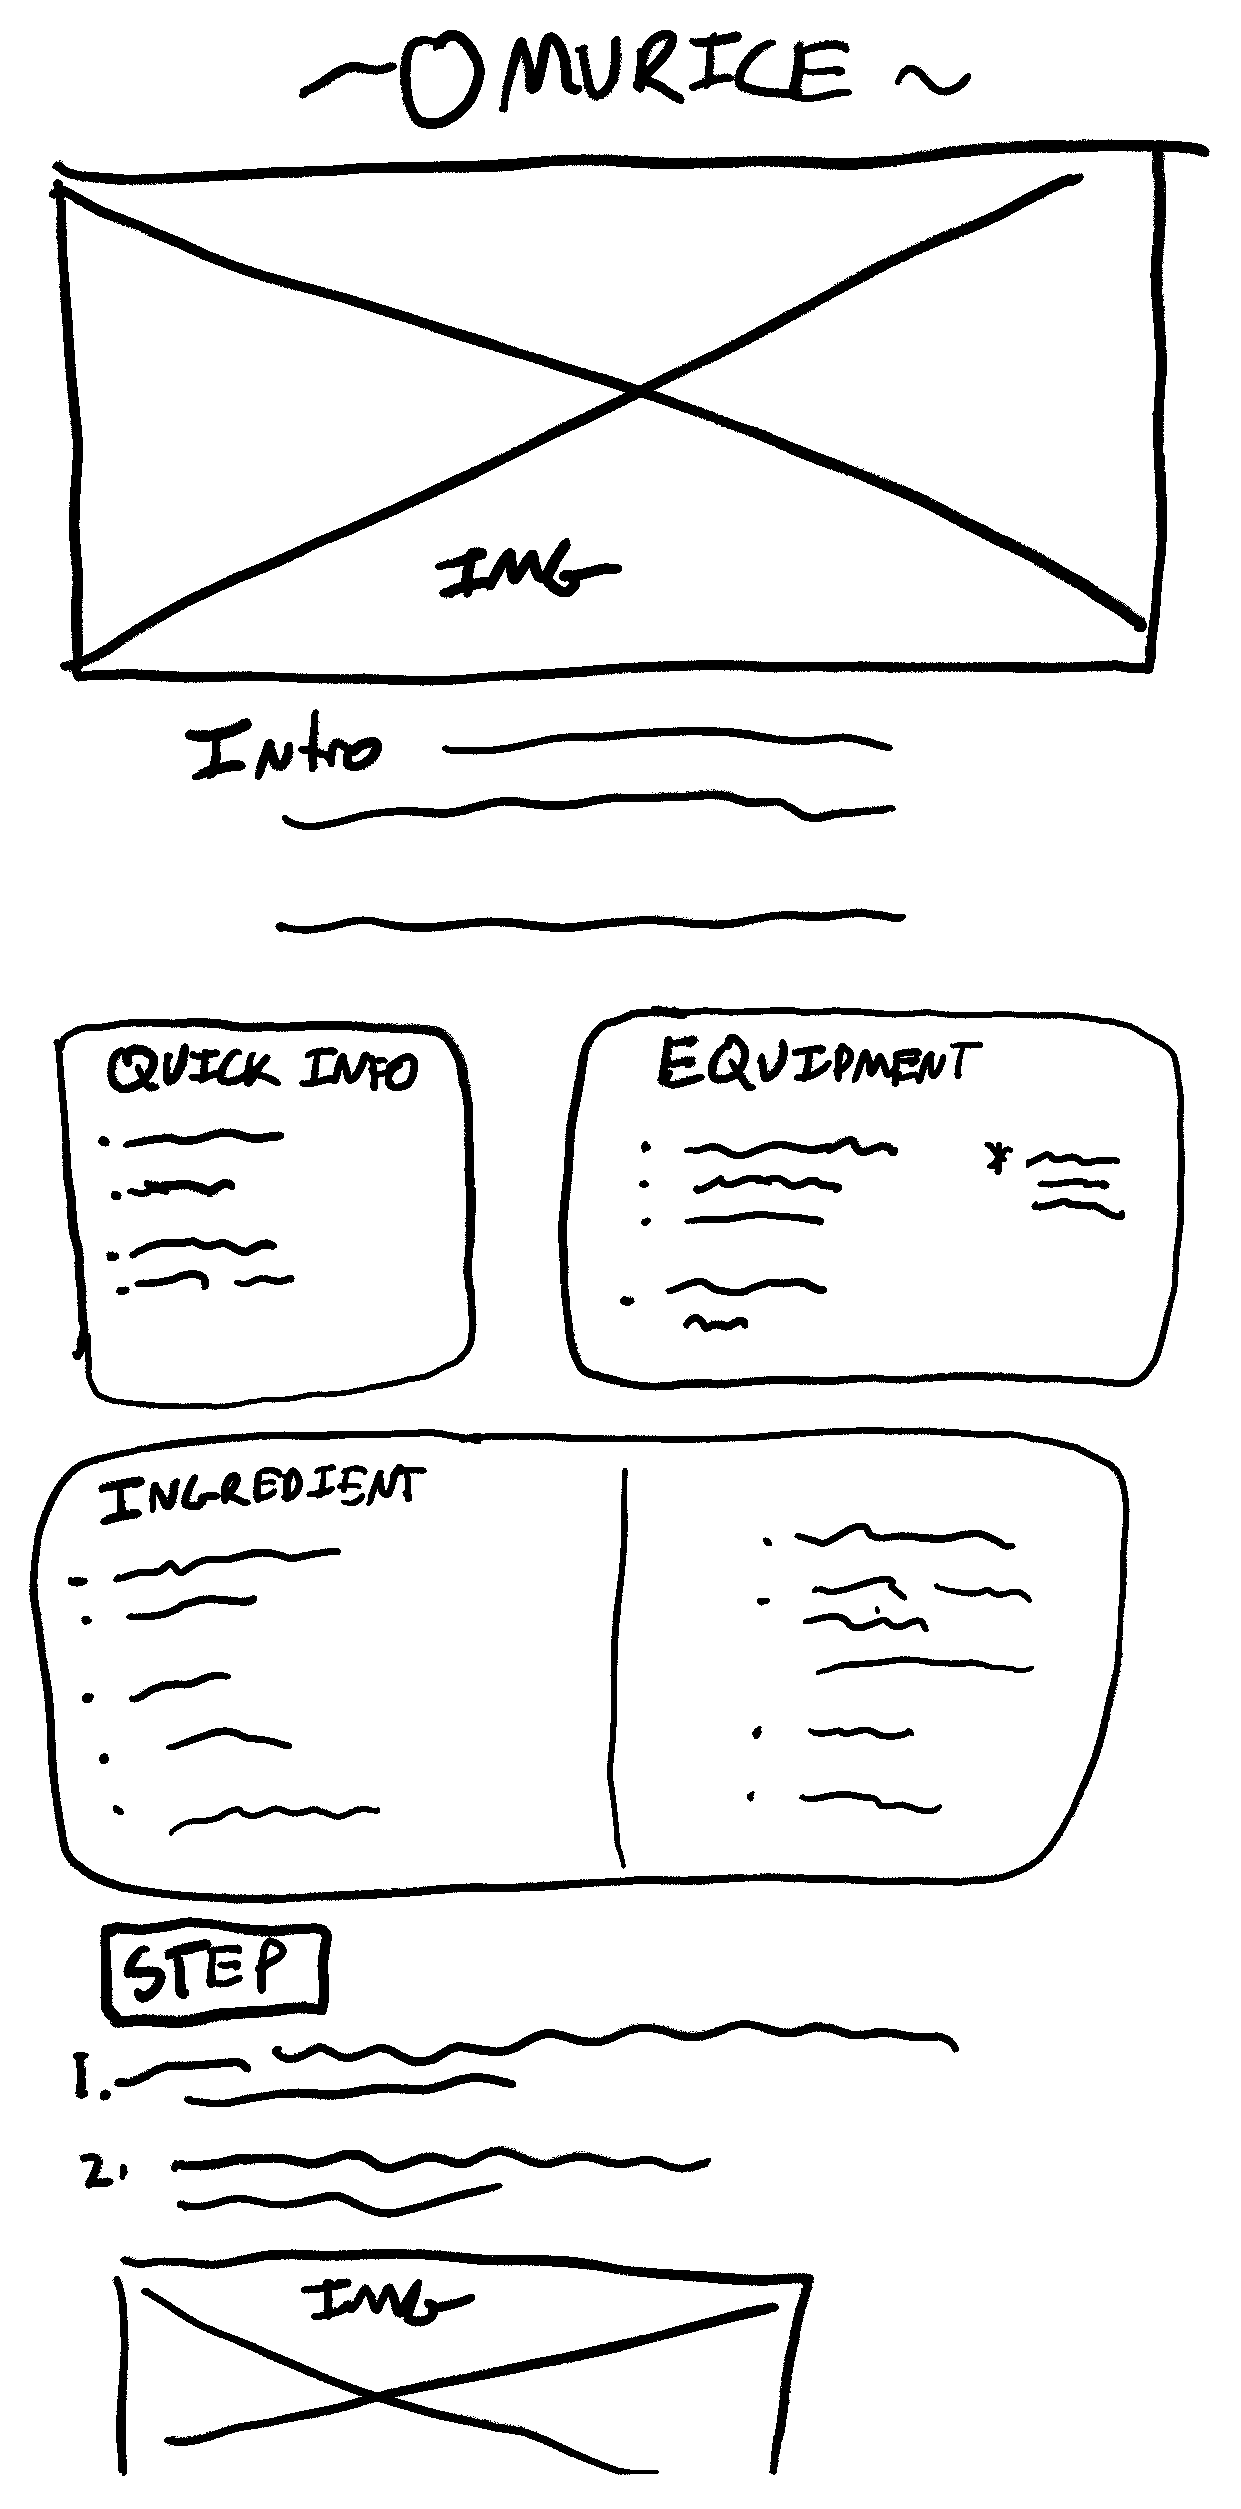 ~OMURICE~
IMG
Intro
QUICK INFO
EQUIPMENT
*
INGREDIENT
STEP
1.
2.
IMG